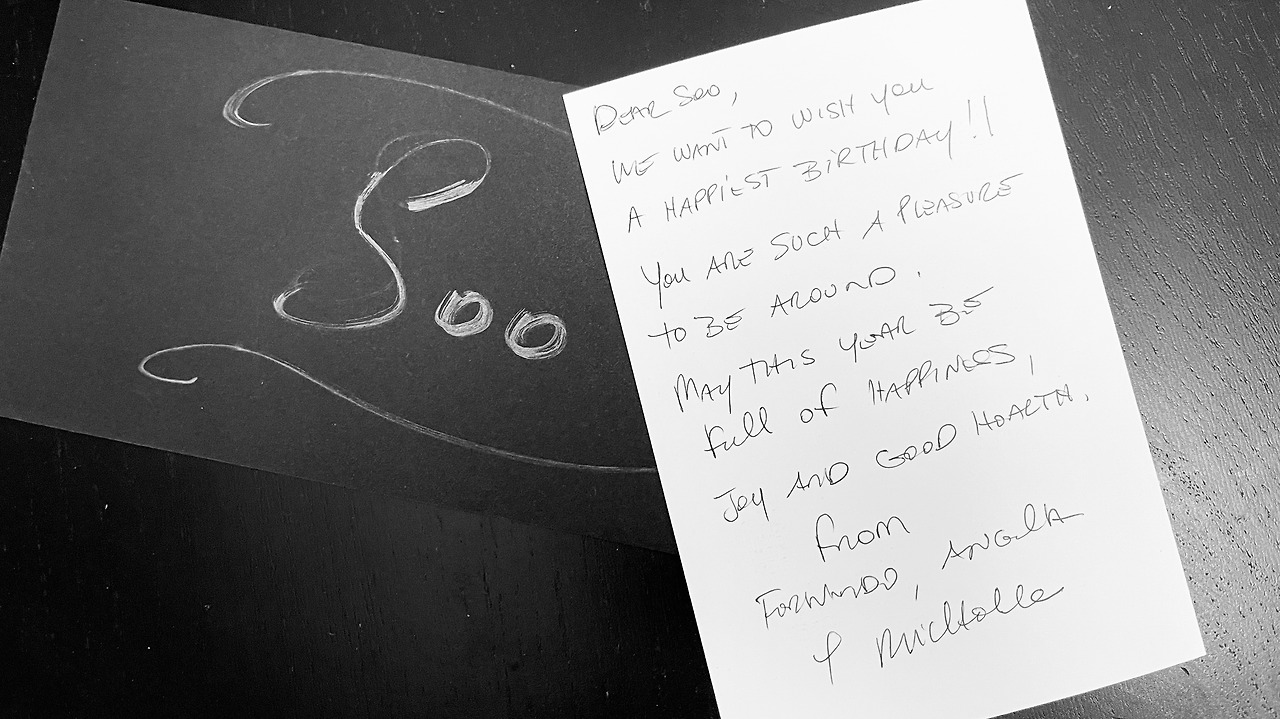 Soo
DEAR SOO,
WE WANT TO WISH you
A HAPPIEST BIRTHDAY!!
you ARE SUCH A PLEASURE
TO BE AROUND.
MAY THIS YEAR BE
full of HAPPINESS,
Joy AND GOOD HEALTH.
from
FERNANDO, ANGELA
y michelle